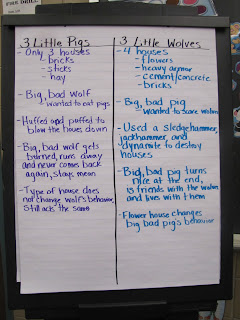 3 Little Pigs
- Only 3 houses
- bricks
- sticks
- hay
- Big, bad wolf
wanted to eat pigs
- Huffed and puffed to
blow the houses down
- Big, bad wolf gets
burned, runs away
and never comes back
again, stays mean
- Type of house does
not change wolf's behavior,
still acts the same
3 Little Wolves
- 4 houses
- flowers
- heavy armor
- cement/concrete
- bricks
- Big, bad pig
wanted to scare wolves
- Used a sledgehammer,
jackhammer, and
dynamite to destroy
houses
- Big, bad pig turns
nice at the end,
is friends with the wolves
and lives with them
- Flower house changes
big bad pig's behavior